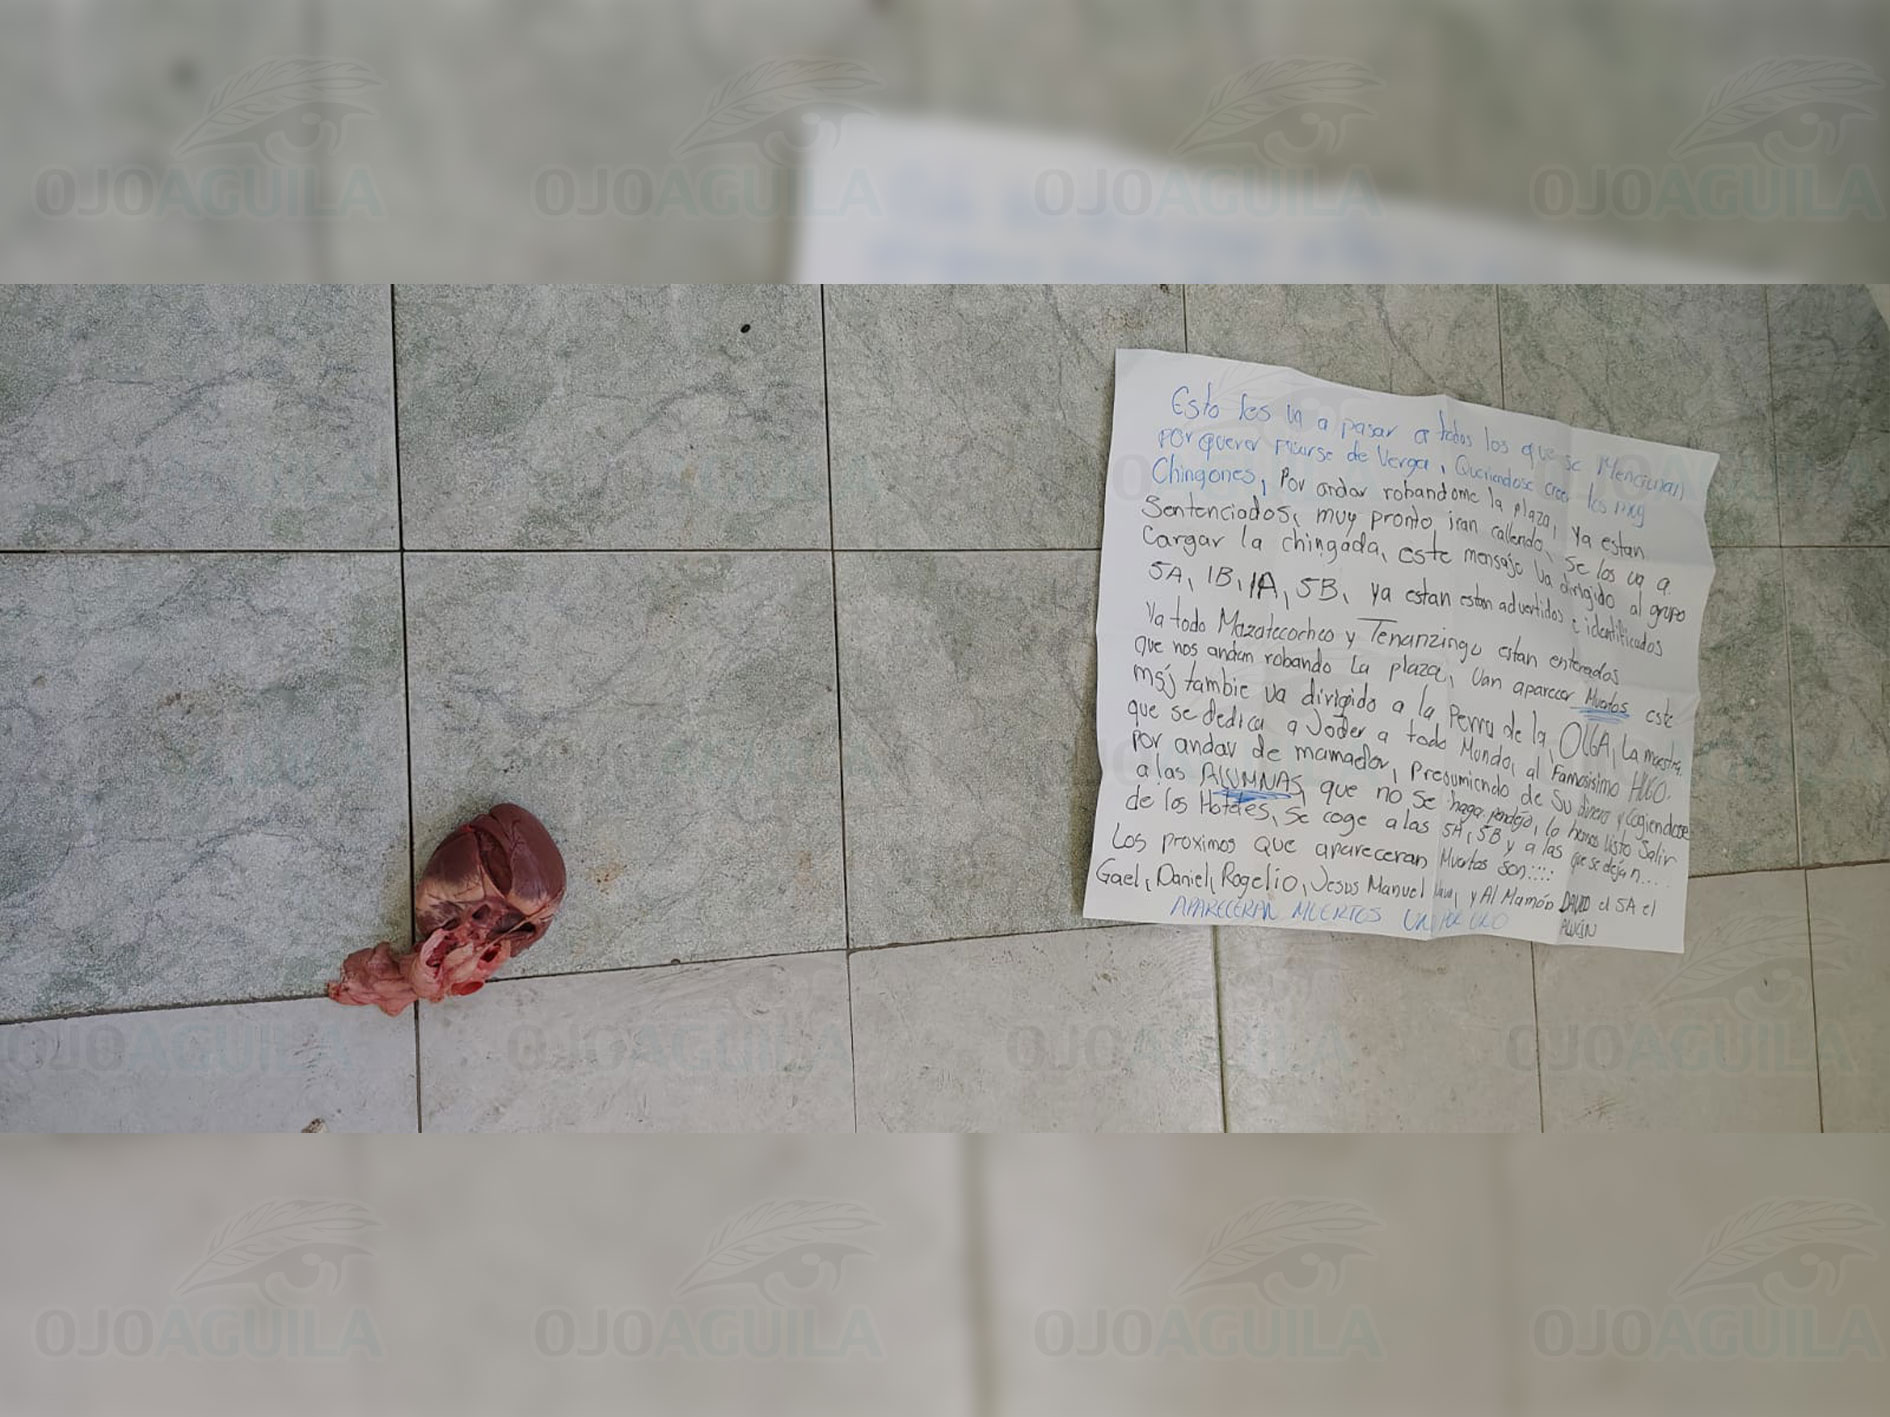 OJOAGUILA OJOAGUILA OJOAGUILA OJOAGUILA
Esto les va a pasar a todos los que se Mencionan
por querer picarse de Verga, Queriendose creer los muy
Chingones, Por andar robandome la plaza, Ya estan
Sentenciados, muy pronto iran callendo, Se los va a
Cargar la chingada, este mensaje va dirigido al grupo
5A, 1B, 1A, 5B, ya estan estan advertidos e identificados
Ya todo Mazatecochco y Tenanzingo estan enterados
que nos andan robando La plaza, Van aparecer Muertos este
msj tambie va dirigido a la Perra de la OLGA, La maestra
que se dedica a Joder a todo Mundo, al Famosisimo HUGO
por andar de mamador, Presumiendo de Su dinero y Cogiendose
a las ALUMNAS, que no se haga pendejo, lo hemos visto Salir
de los Hoteles, Se coge a las 5A, 5B y a las que se dejan....
Los proximos que apareceran Muertos son::::
Gael, Daniel, Rogelio, Jesus Manuel y Al Mamón DAVID el 5A el
APARECERAN MUERTOS UN POR UNO
OJOAGUILA OJOAGUILA OJOAGUILA OJOAGUILA
OJOAGUILA OJOAGUILA OJOAGUILA OJOAGUILA